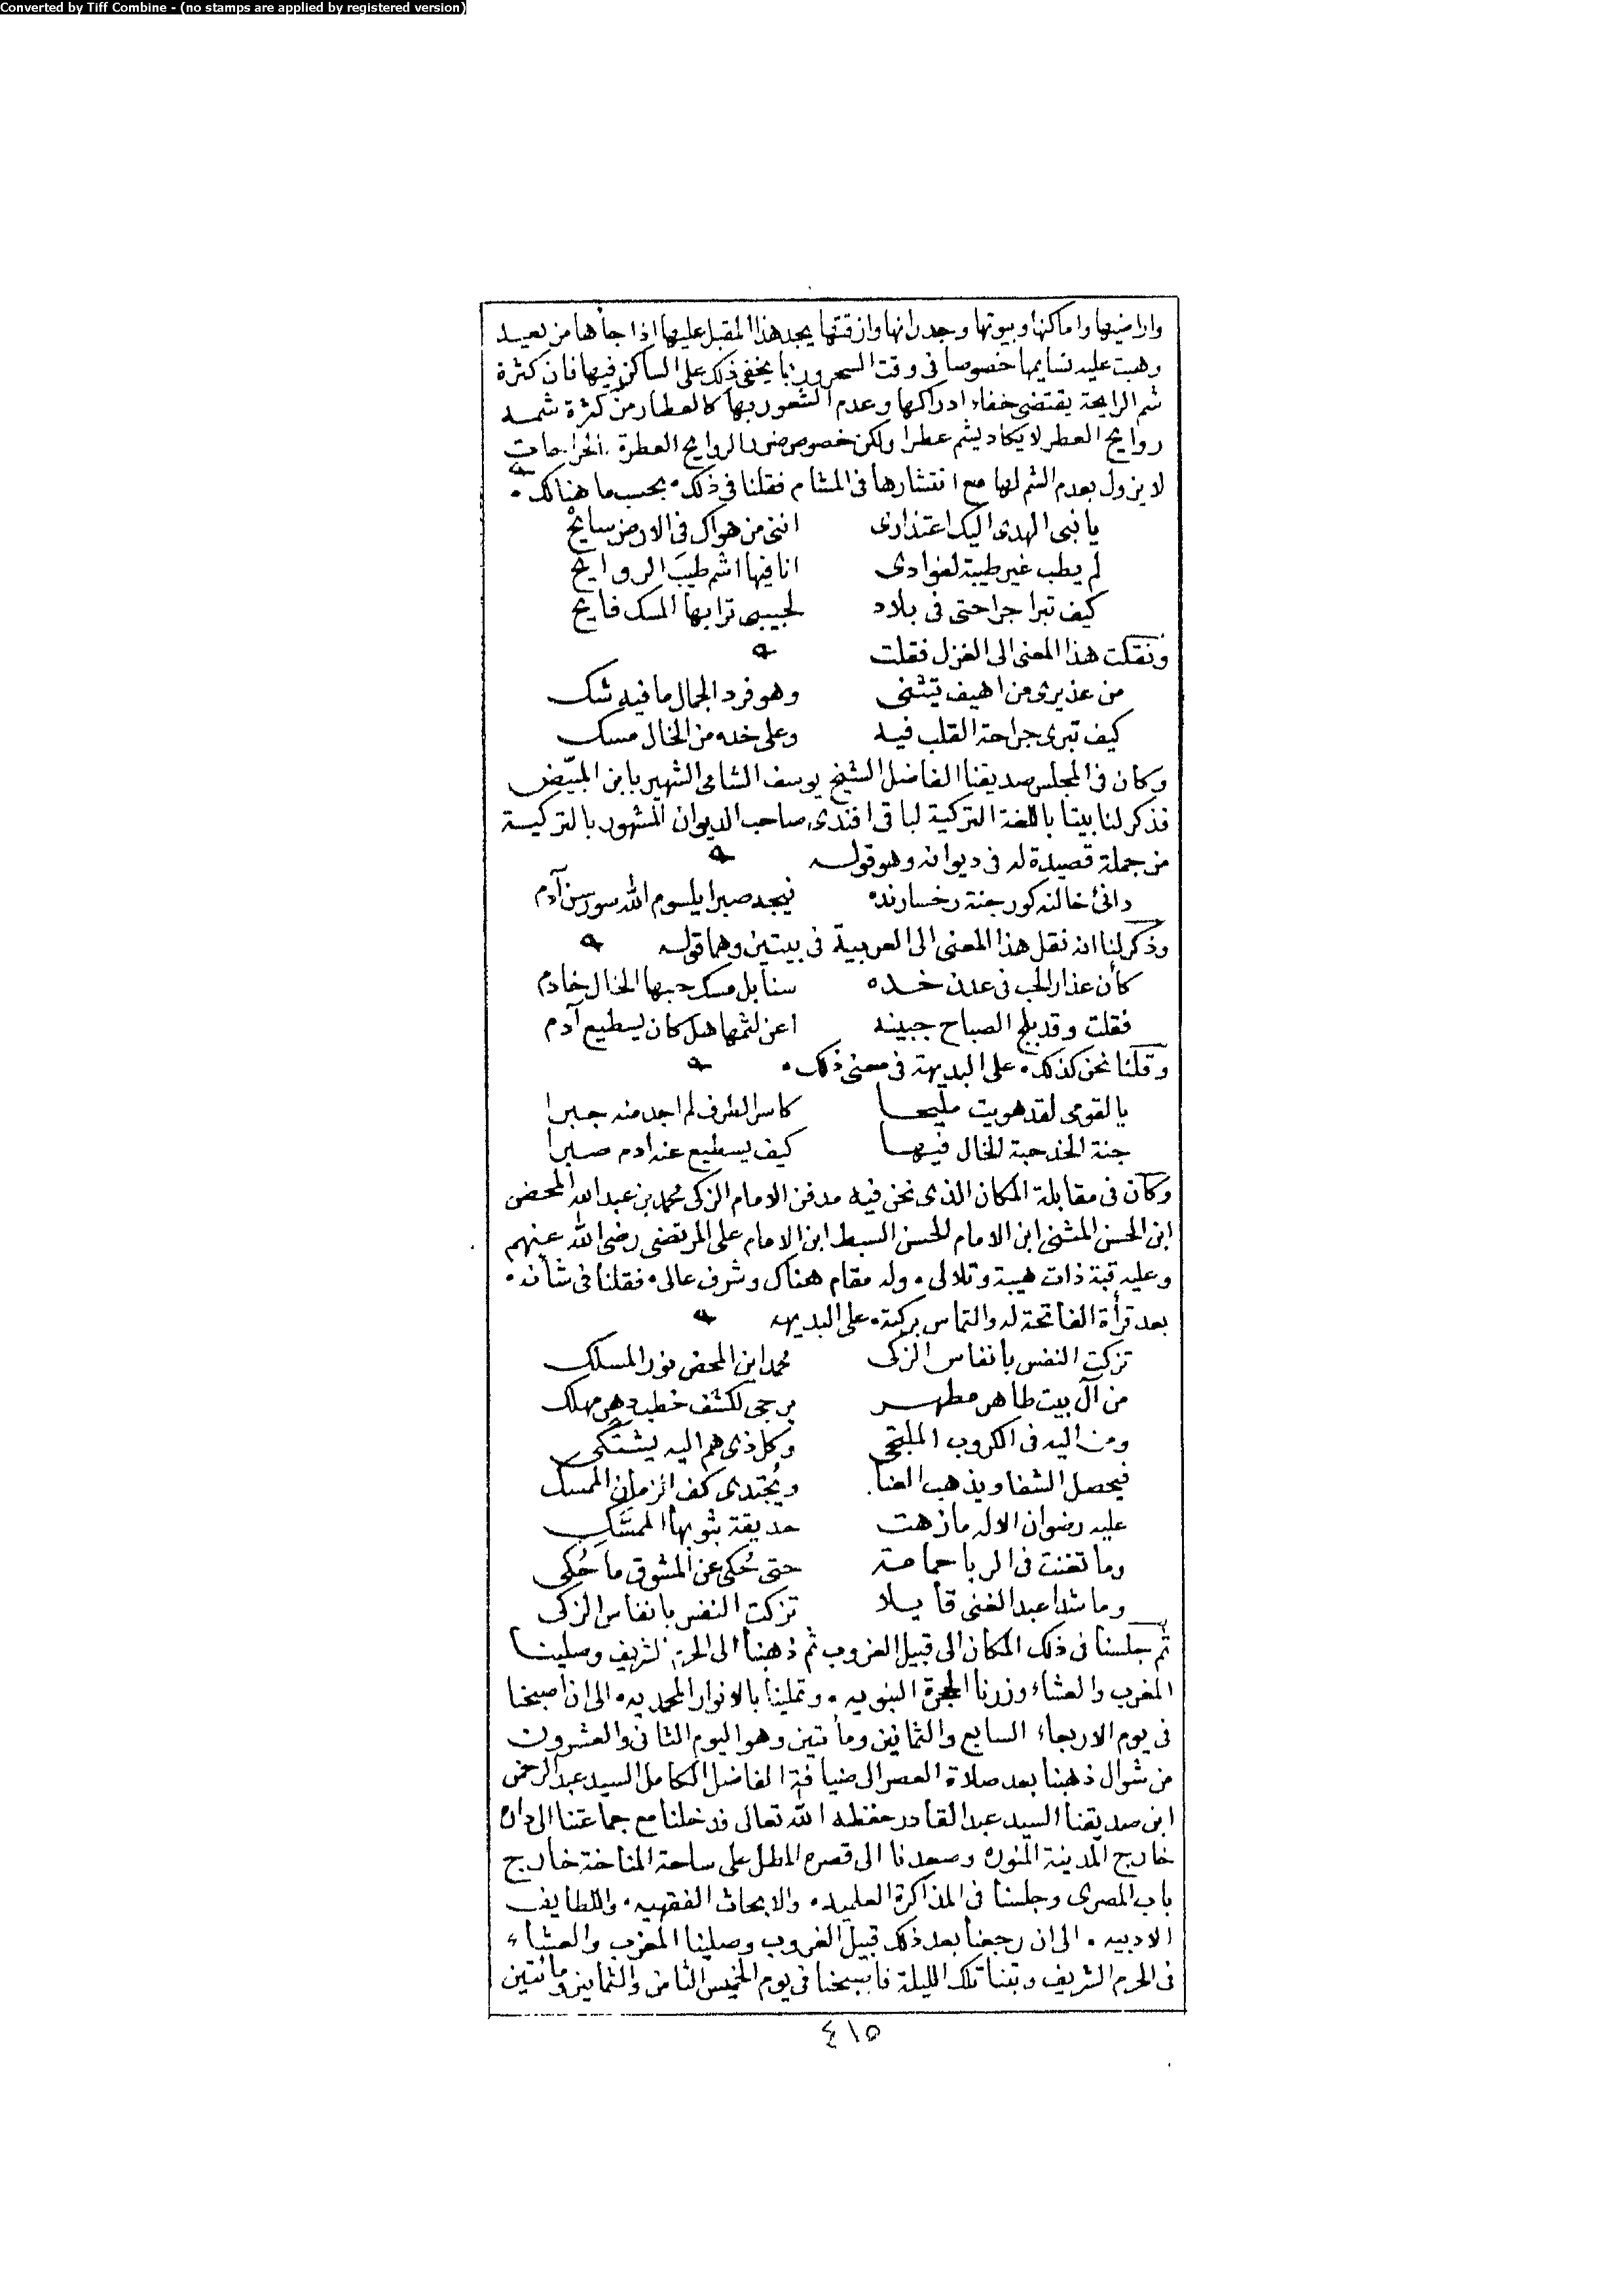 Converted by Tiff Combine - (no stamps are applied by registered version)
واراضيها واماكنها وبيوتها وجدرانها وازقتها يجد هذا المقبل عليها اذا جأها من بعيد
وهبت عليه نسايمها خصوصا فى وقت السحر وربما يخفى ذلك على الساكن فيها فان كثرة
شم الرايحة يقتضى خفاء ادراكها وعدم الشعور بها كالعطار من كثرة شمه
روايح العطر لا يكاد يشم عطرا ولكن خصوص ضرر الروايح العطرة الجراحات
لا يزول بعدم الشم لها مع انتشارها فى المشام فقلنا فى ذلك • بحسب ما هنالك •
يا نبى الهدى اليك اعتذارى اننى من هواك فى الارض سايح
لم يطب غير طيبة لفوادى انا فيها اشم طيب الروايح
كيف تبرا جراحتى فى بلاد لحبيب ترابها المسك فايح
ونقلت هذا المعنى الى الغزل فقلت
من عذيرى من اهيف يتثنى وهو فرد الجمال ما فيه شك
كيف تبرى جراحة القلب فيه وعلى خده من الخال مسك
وكان فى المجلس صديقنا الفاضل الشيخ يوسف الشامى الشهير بابن المبيّض
فذكر لنا بيتا باللغة التركية لباقى افندى صاحب الديوان المشهور بالتركية
من جملة قصيدة له فى ديوانه وهو قوله
دانئ خالنه كور جنة رخسارنده نيجه صبر ايلسوم الله سورسن آدم
وذكر لنا انه نقل هذا المعنى الى العربية فى بيتين وهما قوله
كأن عذار الحب فى عدن خده سنابل مسك حبها الخال خادم
فقلت وقد بلج الصباح جبينه اعن لثمها هل كان يسطيع آدم
وقلنا نحن كذلك • على البديهة فى معنى ذلك •
يا لقومى لقد هويت مليحا كاسر الطرف لم اجد منه جبرا
جنة الخد حبة الخال فيها كيف يسطيع عنه ادم صبرا
وكان فى مقابلة المكان الذى نحن فيه مدفن الامام الزكى محمد بن عبد الله المحض
ابن الحسن المثنى ابن الامام الحسن السبط ابن الامام على المرتضى رضى الله عنهم
وعليه قبة ذات هيبة وتلالى • وله مقام هناك وشرف عالى • فقلنا فى شأنه •
بعد قرأة الفاتحة له والتماس بركته • على البديهه
تزكت النفس بأنفاس الزكى محمد ابن المحض نور المسلك
من آل بيت طاهر مطهر يرجى لكشف خطب دهر مهلك
ومن اليه فى الكروب الملتجى وكل ذى هم اليه يشتكى
فيحصل الشفا ويذهب العنا ويُجتدى كف الزمان الممسك
عليه رضوان الاله ما زهت حديقة بثوبها الممسّك
وما تغنت فى الربا حمامة حتى حُكى عن المشوق ما حُكى
وما شدا عبد الغنى قايلا تزكت النفس بانفاس الزكى
ثم جلسنا فى ذلك المكان الى قبيل الغروب ثم ذهبنا الى الحرم الشريف وصلينا
المغرب والعشاء وزرنا الحجرة النبويه • وتملينا بالانوار المحمديه • الى ان اصبحنا
فى يوم الاربعاء السابع والثمانين ومأتين وهو اليوم الثانى والعشرون
من شوال ذهبنا بعد صلاة العصر الى ضيافة الفاضل الكامل السيد عبد الرحمن
ابن صديقنا السيد عبد القادر حفظه الله تعالى فدخلنا مع جماعتنا الى داره
خارج المدينة المنوره وصعدنا الى قصره المطل على ساحة المناخة خارج
باب المصرى وجلسنا فى المذاكرة العلميه • والابحاث الفقهيه • واللطايف
الادبيه • الى ان رجعنا بعد ذلك قبيل الغروب وصلينا المغرب والعشاء
فى الحرم الشريف وبتنا تلك الليلة فاصبحنا فى يوم الخميس الثامن والثمانين ومائتين
٤١٥